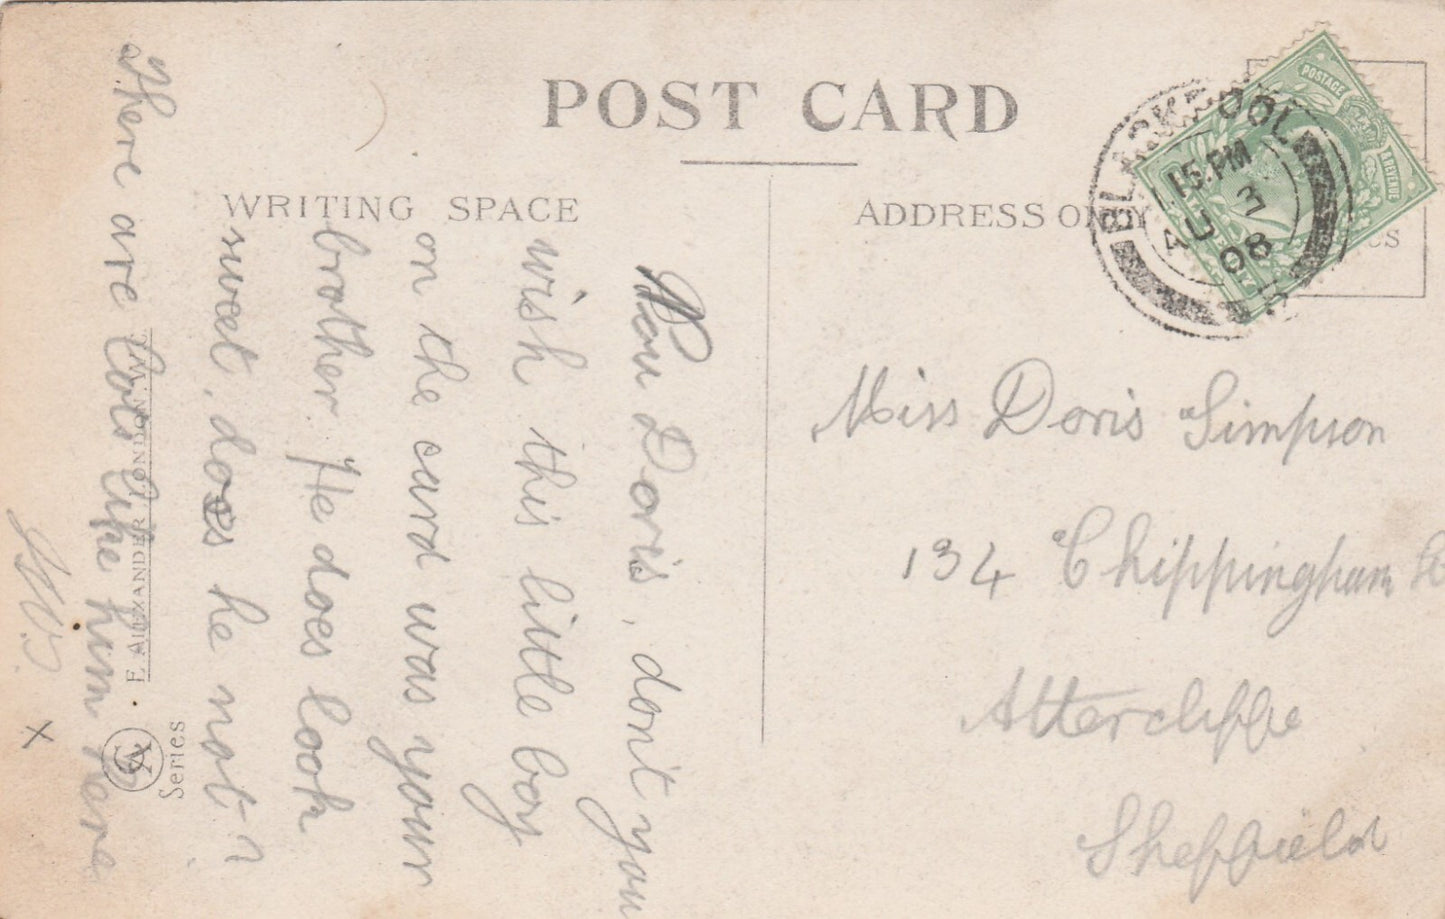 POST CARD
WRITING SPACE
ADDRESS ONLY
BLACKPOOL
15.PM
AU 3
08
POSTAGE
& REVENUE
Now Doris, don't you
wish this little boy
on the card was your
brother. He does look
sweet, does he not?
There are lots like him here
x
E. ALEXANDER LONDON. W.
Series
Miss Doris Simpson
134 Chippingham
Attercliffe
Sheffield